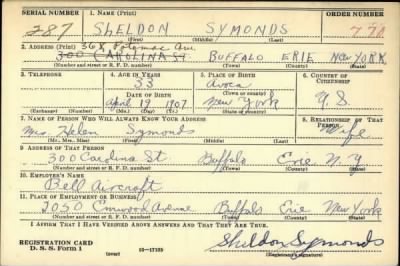 SERIAL NUMBER 1. NAME (Print) ORDER NUMBER
287 SHELDON SYMONDS 770
(First) (Middle) (Last)
2. ADDRESS (Print) 368 Potomac Ave.
300 CAROLINA ST. BUFFALO ERIE NEW YORK
(Number and street or R. F. D. number) (Town) (County) (State)
3. TELEPHONE 4. AGE IN YEARS 5. PLACE OF BIRTH 6. COUNTRY OF CITIZENSHIP
33 Avoca
DATE OF BIRTH (Town or county)
April 19 1907 New York U.S.
(Exchange) (Number) (Mo.) (Day) (Yr.) (State or country)
7. NAME OF PERSON WHO WILL ALWAYS KNOW YOUR ADDRESS 8. RELATIONSHIP OF THAT PERSON
Mrs. Helen Symonds Wife
(Mr., Mrs., Miss) (First) (Middle) (Last)
9. ADDRESS OF THAT PERSON
300 Carolina St Buffalo Erie N.Y
(Number and street or R. F. D. number) (Town) (County) (State)
10. EMPLOYER'S NAME
Bell Aircraft
11. PLACE OF EMPLOYMENT OR BUSINESS
2050 Elmwood Avenue Buffalo Erie New York
(Number and street or R. F. D. number) (Town) (County) (State)
I AFFIRM THAT I HAVE VERIFIED ABOVE ANSWERS AND THAT THEY ARE TRUE.
REGISTRATION CARD
D. S. S. Form 1 16—17105 Sheldon Symonds
(Registrant's signature)